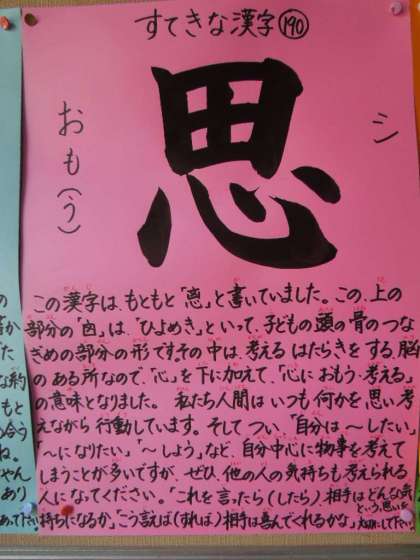 すてきな漢字 190
思
おも(う)
シ
この漢字は、もともと「恖」と書いていました。この、上の
部分の「囟」は、「ひよめき」といって、子どもの頭の骨のつな
ぎめの部分の形です。その中は、考えるはたらきをする、脳
のある所なので、「心」を下に加えて、「心におもう・考える」
の意味となりました。 私たち人間はいつも何かを思い考
えながら行動しています。そしてつい、「自分は〜したい」
「〜になりたい」「〜しよう」など、自分中心に物事を考えて
しまうことが多いですが、ぜひ、他の人の気持ちも考えられる
人になってください。「これを言ったら(したら)相手はどんな気
持ちになるか」「こう言えば(すれば)相手は喜んでくれるかな」
という、思いを
大切にして下さい